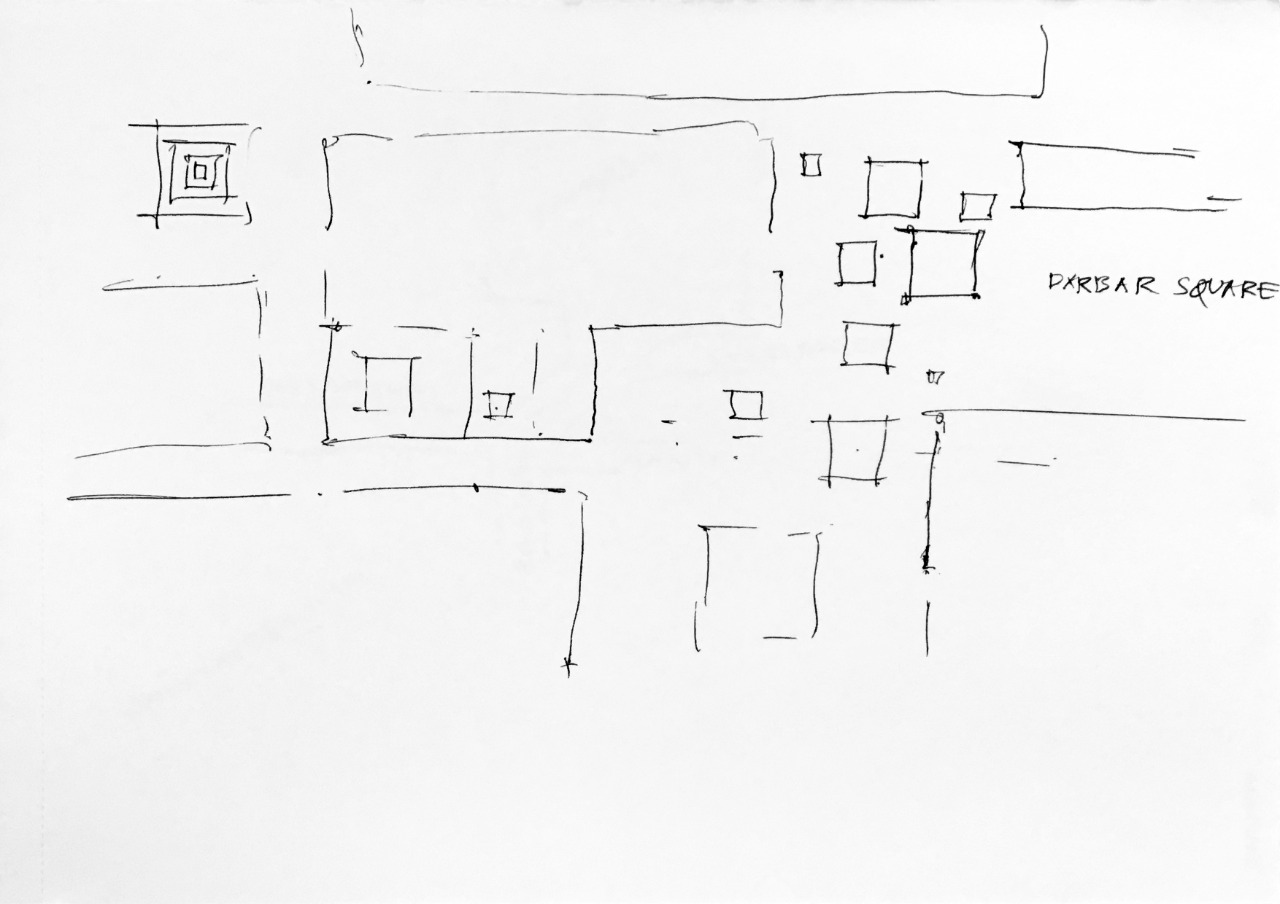 DARBAR SQUARE